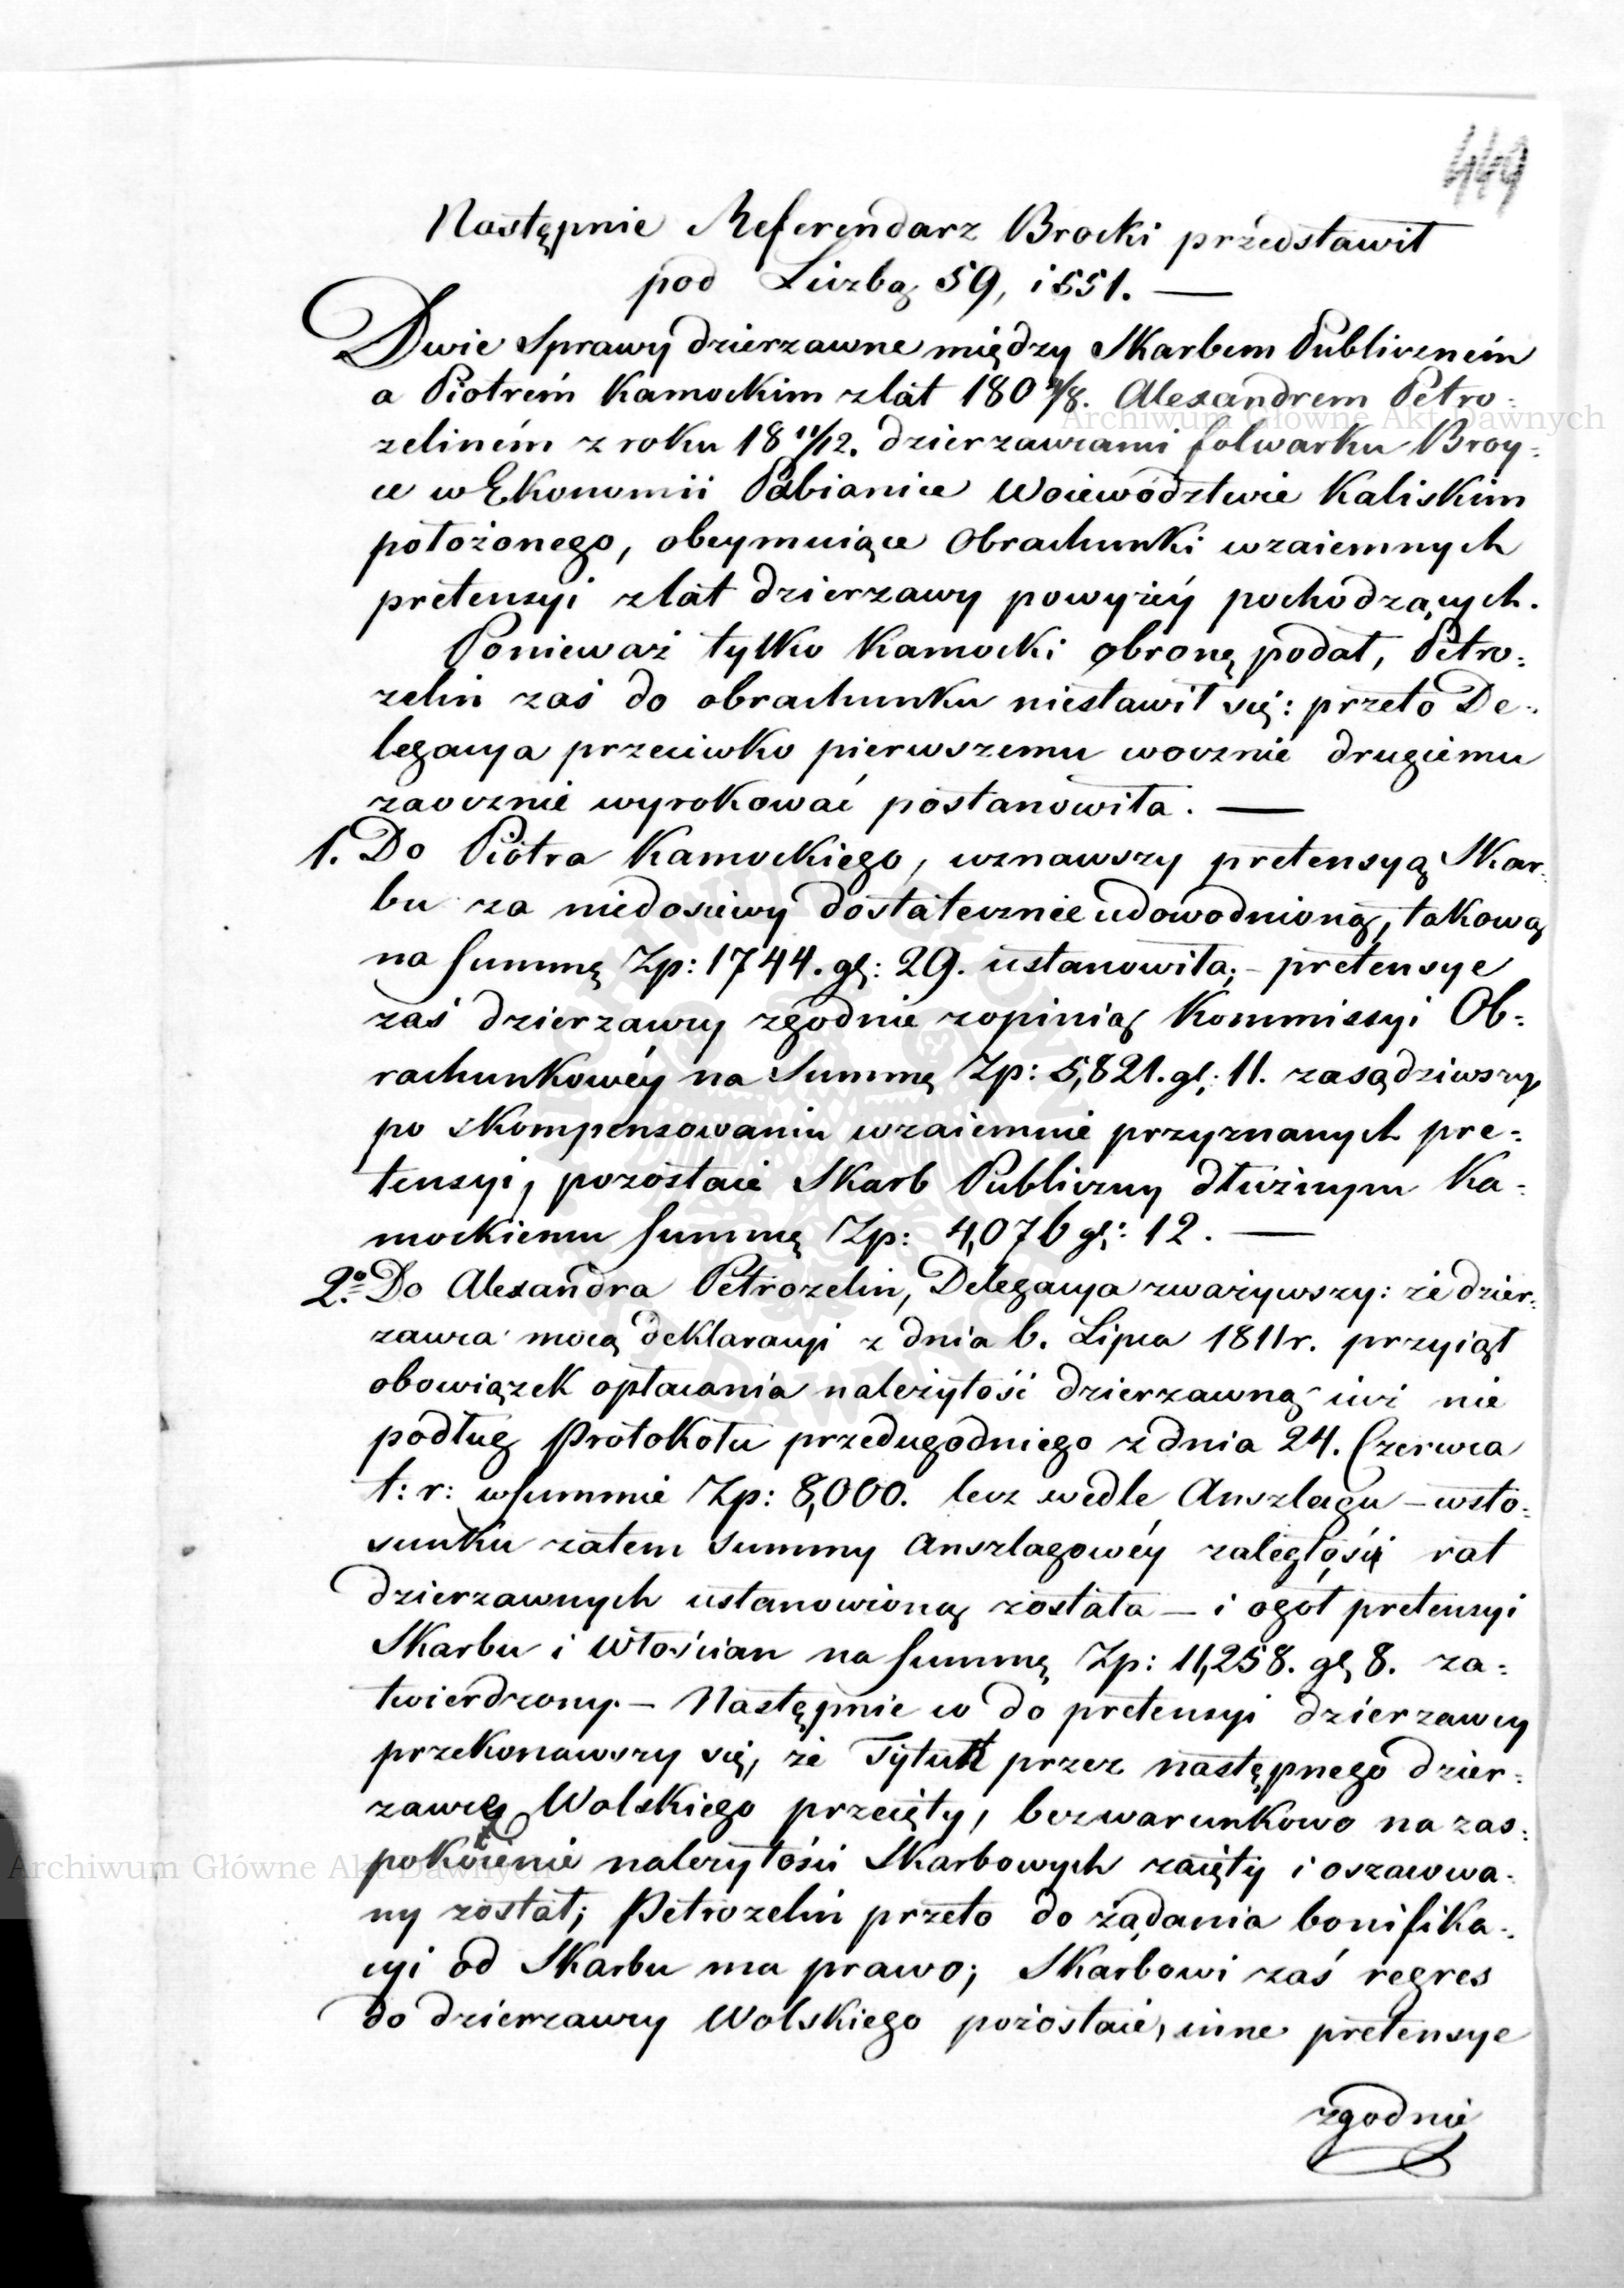 449
Następnie Referendarz Brocki przedstawił
pod Liczbą 59, i 551. —
Dwie Sprawy dzierzawne między Skarbem Publicznem
a Piotrem Kamockim z lat 180 7/8. Alexandrem Petro-
zelinem z roku 18 11/12. dzierzawcami folwarku Broy-
ce w Ekonomii Pabianice Woiewództwie Kaliskim
położonego, obeymuiące Obrachunki wzaiemnych
pretensyi z lat dzierzawy powyżéy pochodzących.
Ponieważ tylko Kamocki obronę podał, Petro-
zelin zaś do obrachunku niestawił się: przeto De-
legacya przeciwko pierwszemu wocznie drugiemu
zaocznie wyrokować postanowiła. —
1. Do Piotra Kamockiego, uznawszy pretensyą Skar-
bu za niedosiewy dostatecznie udowodnioną, takową
na summę Zp: 1744. gr: 29. ustanowiła; – pretensye
zaś dzierzawcy zgodnie z opinią Kommissyi Ob-
rachunkowéy na Summę Zp: 5,821. gr: 11. zasądziwszy,
po skompensowaniu wzaiemnie przyznanych pre-
tensyi, pozostaie Skarb Publiczny dłużnym Ka-
mockiemu summę Zp: 4,076 gr: 12. —
2.o Do Alexandra Petrozelin, Delegacya zważywszy: że dzier-
zawca mocą deklaracyi z dnia 6. Lipca 1811 r. przyiął
obowiązek opłacania należytość dzierzawną iuż nie
podług Protokołu przedugodniego z dnia 24. Czerwca
t: r: w summie Zp: 8,000. lecz wedle Anszlagu – w sto-
sunku zatem summy anszlagowéy zaległości rat
dzierzawnych ustanowioną została – i ogół pretensyi
Skarbu i Włościan na summę Zp: 11,258. gr 8. za-
twierdzony. – Następnie co do pretensyi dzierzawcy
przekonawszy się, że Tytuł przez następnego dzier-
zawcę Wolskiego przeięty, bezwarunkowo na zas-
pokoienie należytości Skarbowych zaięty i oszacowa-
ny został; Petrozelin przeto do żądania bonifika-
cyi od Skarbu ma prawo; Skarbowi zaś regres
do dzierzawcy Wolskiego pozostaie, inne pretensye
zgodnie
Archiwum Główne Akt Dawnych
Archiwum Główne Akt Dawnych